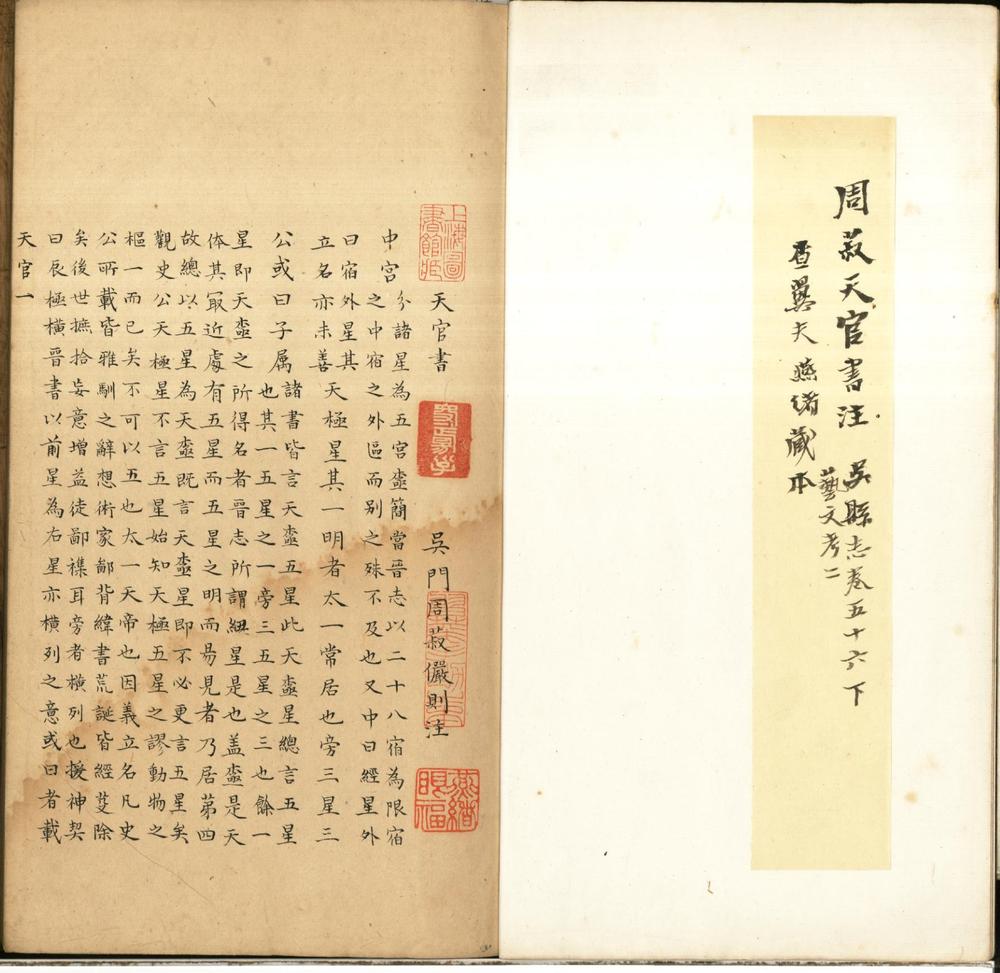 周菽天官書注 吳縣志卷五十六下
藝文考二
查翼夫燕緒藏本
上海圖書館臧
天官書 吳門周菽儼則注
燕緒眼福
中宮分諸星為五宮盇簡當晉志以二十八宿為限宿
之中宿之外區而别之殊不及也又中曰經星外
曰宿外星其
立名亦未善天極星其一明者太一常居也旁三星三
公或曰子属諸書皆言天盇五星此天盇星總言五星
也其一五星之一旁三五星之三也餘一
星即天盇之所得名者晉志所謂紐星是也盖盇是天
体其㝡近處有五星而五星之明而昜見者乃居第四
故總以五星為天盇既言天盇星即不必更言五星矣
觀史公天極星不言五星始知天極五星之謬動物之
樞一而已矣不可以五也太一天帝也因義立名凡史
公所載皆雅馴之辭想術家鄙背緯書荒誕皆經芟除
矣後世摭拾妄意增益徒鄙襍耳旁者横列也援神契
曰辰極横晉書以前星為右星亦横列之意或曰者載
天官一